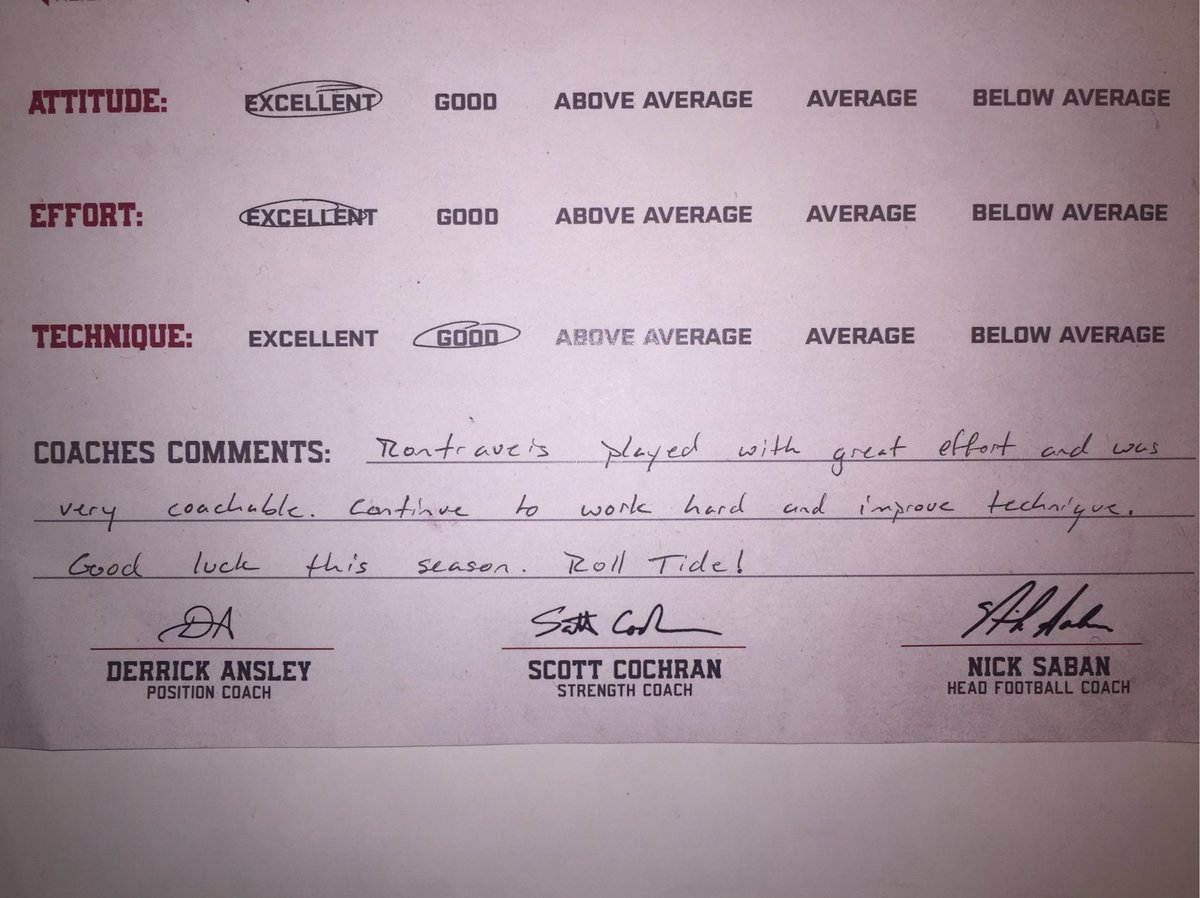 ATTITUDE: EXCELLENT GOOD ABOVE AVERAGE AVERAGE BELOW AVERAGE
EFFORT: EXCELLENT GOOD ABOVE AVERAGE AVERAGE BELOW AVERAGE
TECHNIQUE: EXCELLENT GOOD ABOVE AVERAGE AVERAGE BELOW AVERAGE
COACHES COMMENTS: Rontraveis played with great effort and was
very coachable. Continue to work hard and improve technique.
Good luck this season. Roll Tide!
DA Scott Cochran Nick Saban
DERRICK ANSLEY SCOTT COCHRAN NICK SABAN
POSITION COACH STRENGTH COACH HEAD FOOTBALL COACH